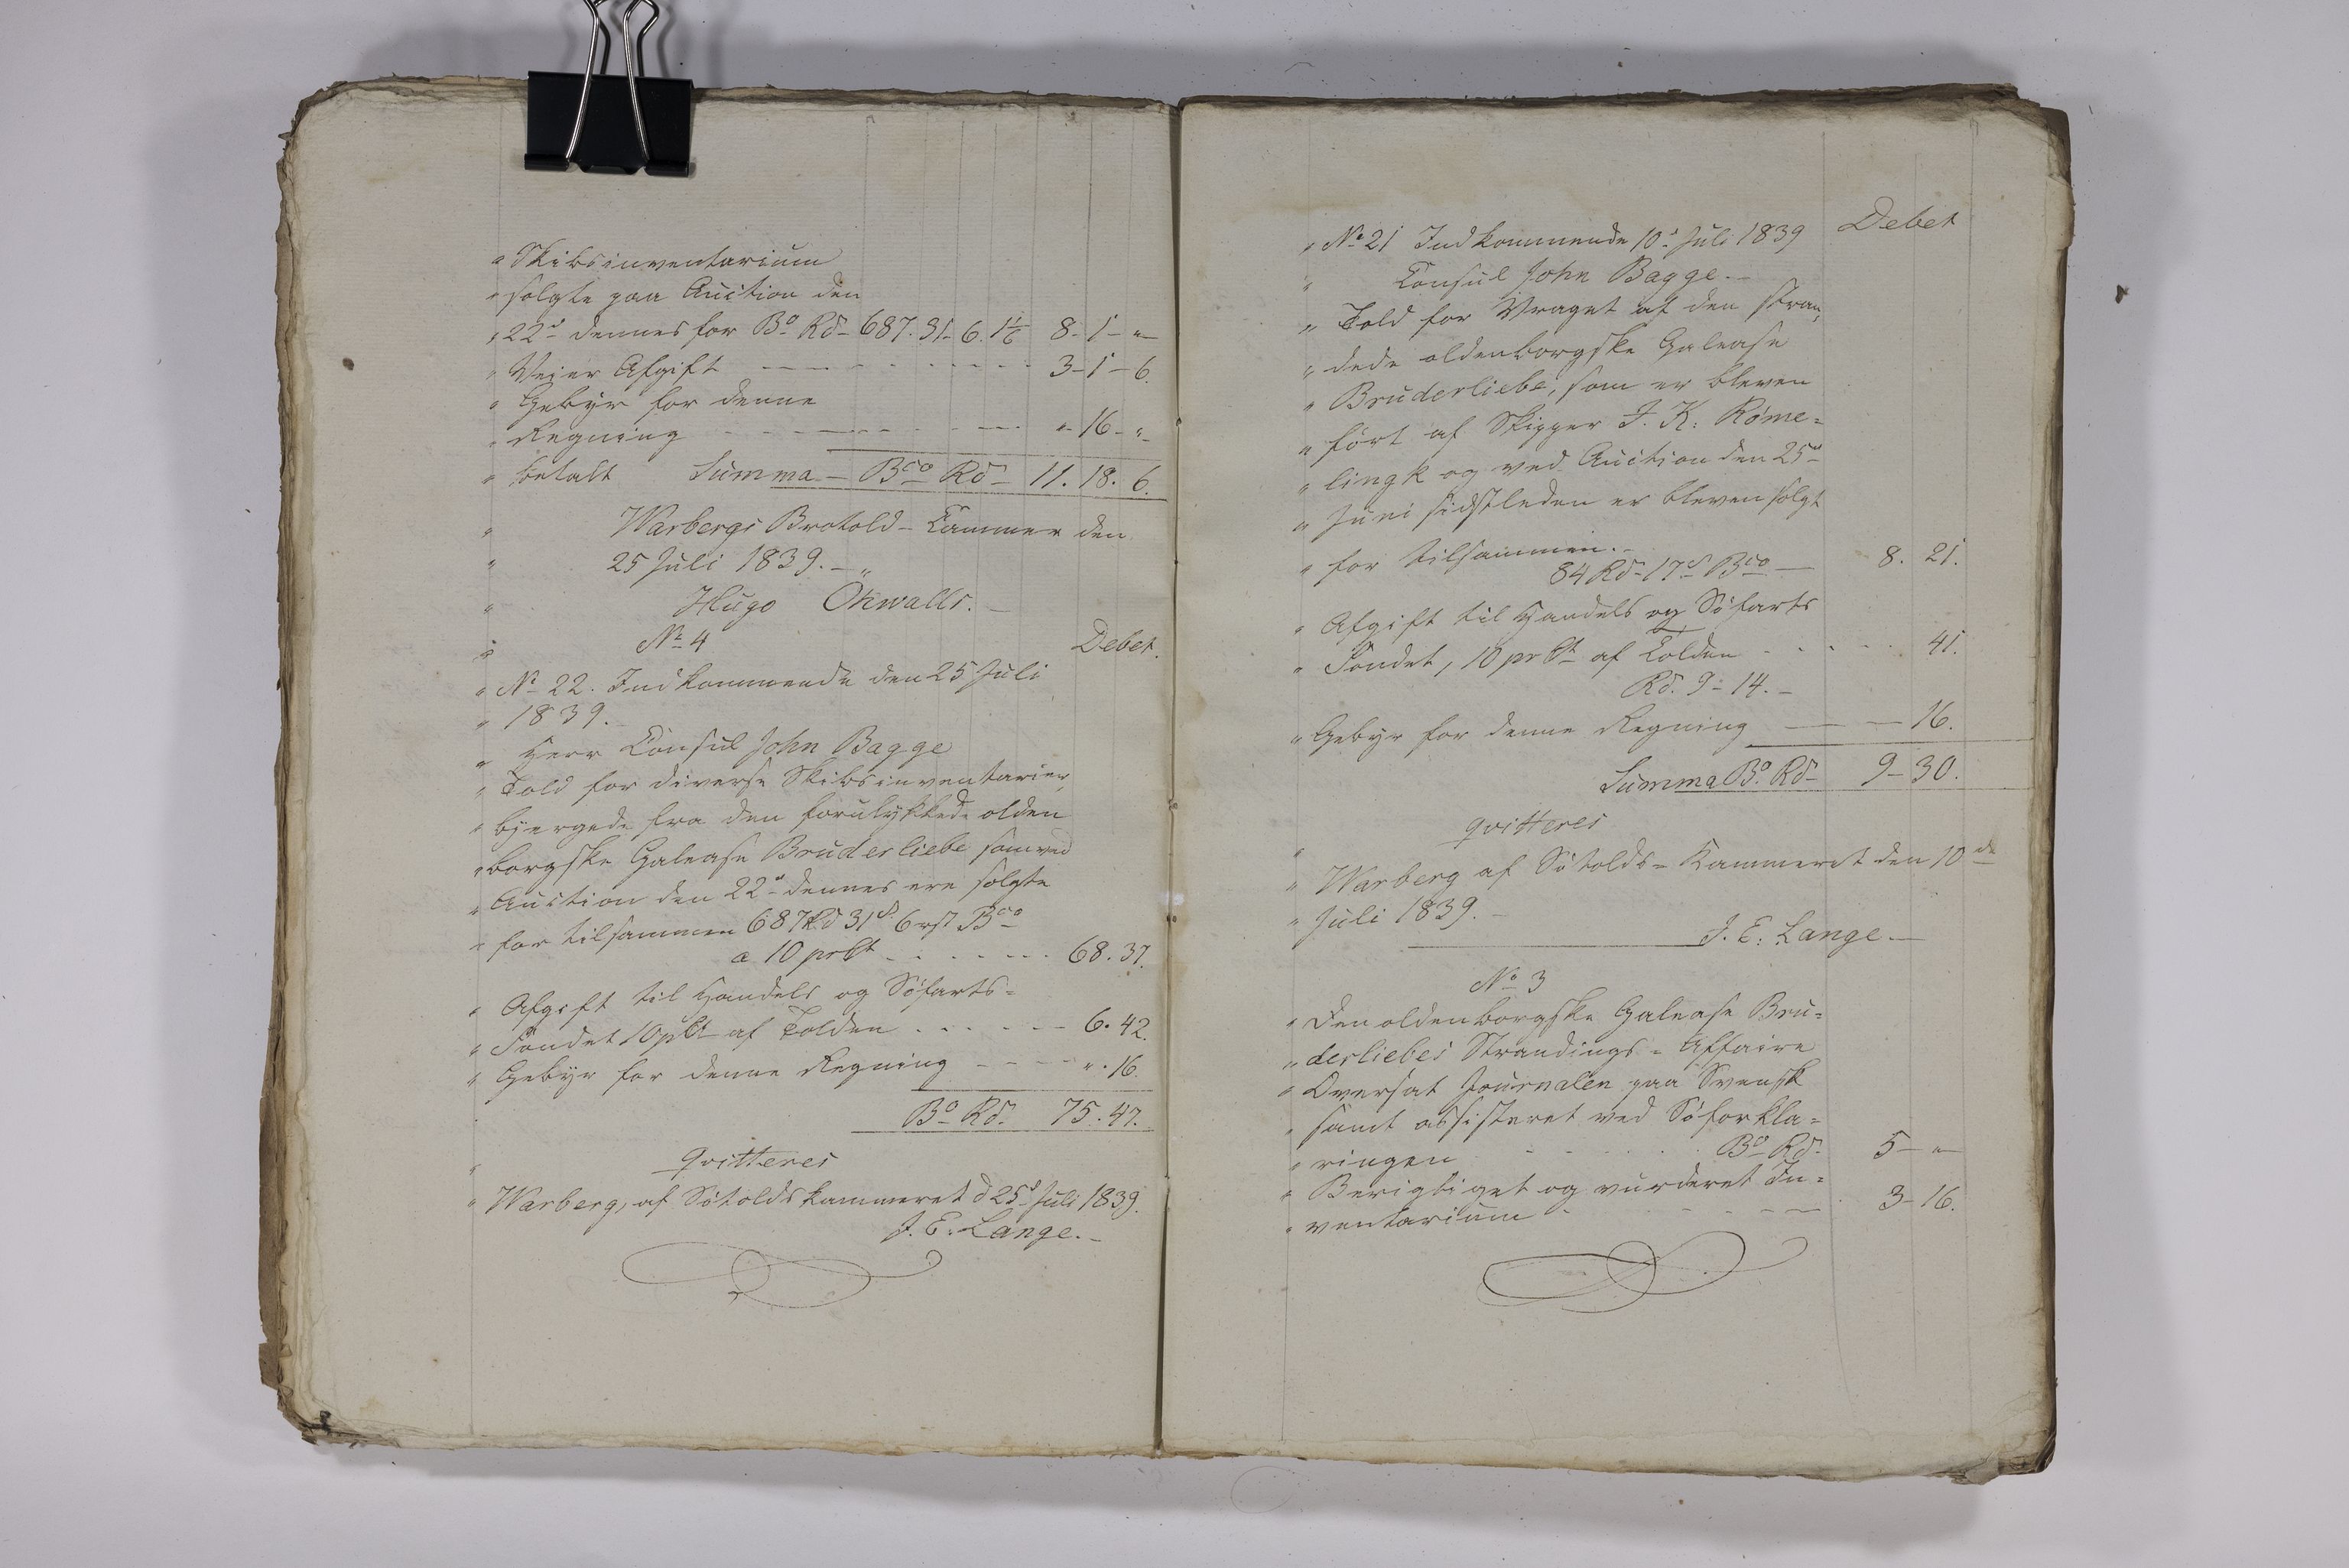 " Skibsinventarium
" solgte paa Auction den
" 22d dennes for Bo Rd 687. 31. 6. 1 1/6 8 - 1 - "
" Veier Afgift - - - 3 - 1 - 6.
" Gebyr for denne
" Regning - - - " 16 - "
" betalt Summa - Bco Rd 11. 18. 6.
" Warbergs Brotold - Cammer den
" 25 Juli 1839. - "
" Hugo Ohwalls. -
" No 4 Debet.
" No 22. Indkommende den 25 Juli
" 1839.
" Herr Consul John Bagge
" Told for diverse Skibsinventarier,
" bjergede fra den forulykkede olden
" borgske Galease Bruderliebe som ved
" Auction den 22d dennes ere solgte
" for tilsammen 687 Rd 31 s 6 rst Bco
a 10 prCt - - - 68. 37.
" Afgift til Handels og Söfarts=
" Fondet 10 pCt af Tolden - - - 6. 42.
" Gebyr for denne Regning - - - " . 16.
Bo Rd. 75. 47.
" qvitteres
" Warberg, af Sötoldskammeret d 25d Juli 1839.
J. E. Lange. -
" No 21 Indkommende 10d Juli 1839 Debet
" Consul John Bagge. -
" Told for Vraget af den stran,
" dede oldenborgske Galease
" Bruderliebe, som er bleven
" fört af Skipper J. K. Röme=
" lingk og ved Auction den 25d
" Juni sidstleden er bleven solgt
" for tilsammen. -
84 Rd 17 s Bco — 8. 21.
" Afgift til Handels og Söfarts
" Fondet, 10 pr Ct af Tolden - - - 41.
Rd. 9 - 14. -
" Gebyr for denne Regning — — 16.
Summa Bo Rd 9 - 30.
" qvitteres
" Warberg af Sötolds=Kammeret den 10de
" Juli 1839. -
J. E. Lange. -
No 3
" Den oldenborgske Galease Bru=
" derliebes Strandings=Affaire
" Oversat Journalen paa Svensk
" samt assisteret ved Söforkla=
" ringen - - - Bo Rd. 5 - "
" Berigtiget og vurderet In=
" ventarium - - - 3 - 16.